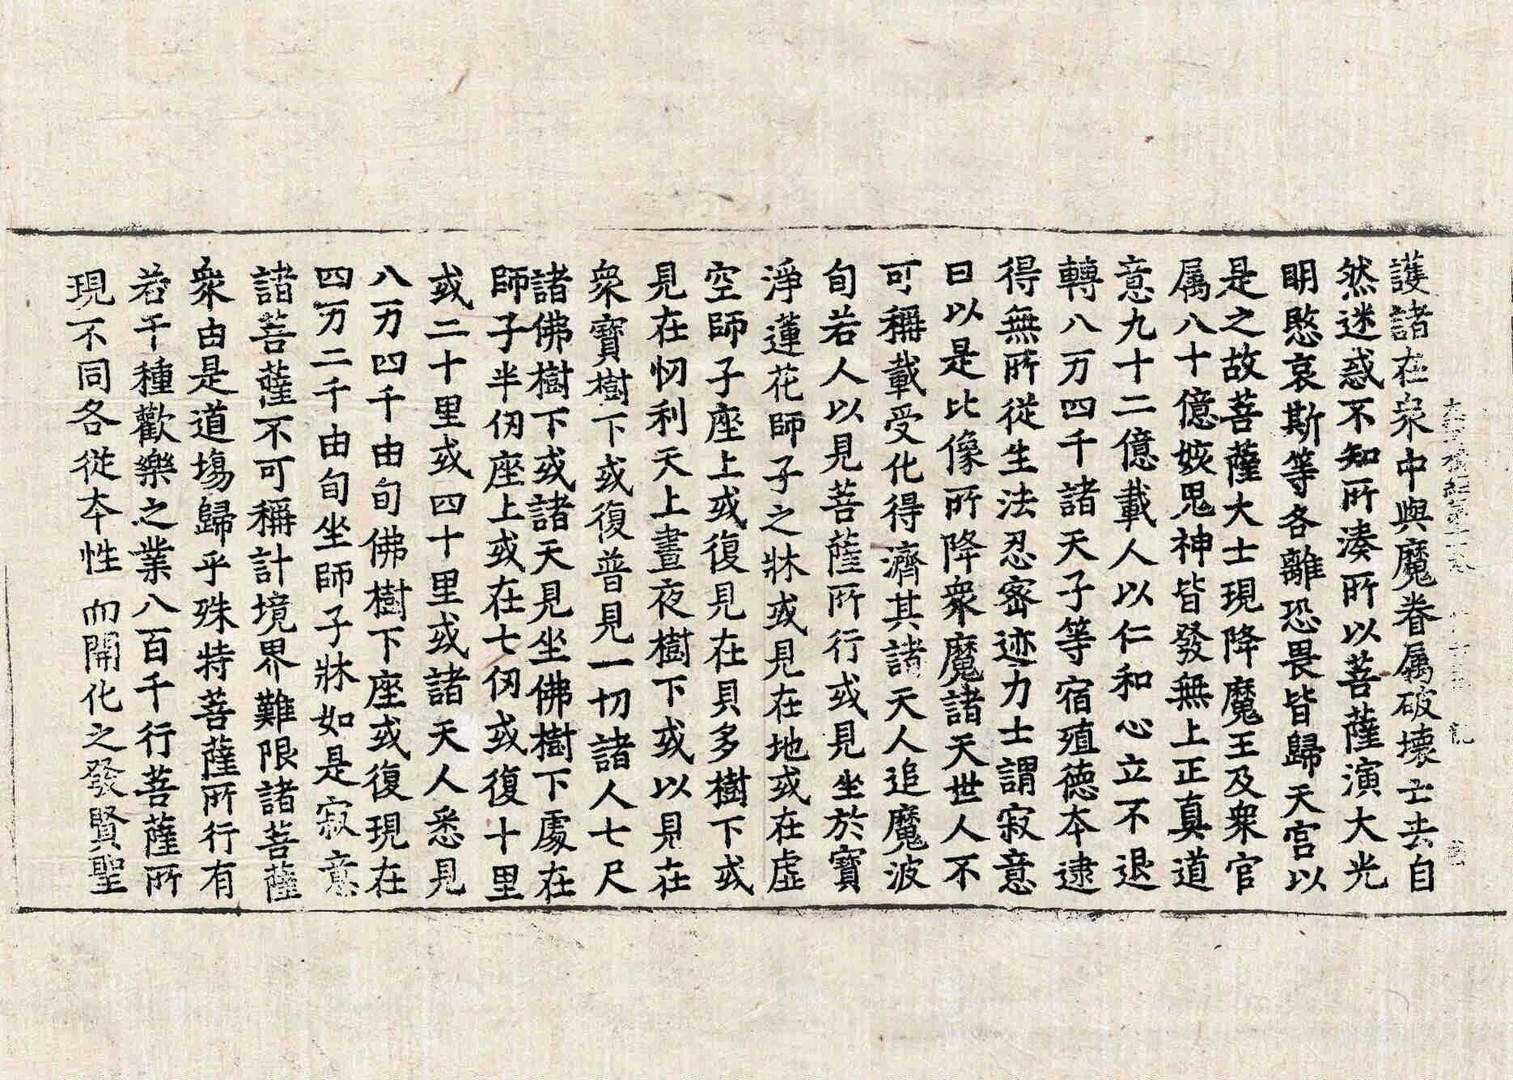 大寶積經第十卷 第十五 龍
護諸在衆中與魔眷属破壞亡去自
然迷惑不知所湊所以菩薩演大光
明愍哀斯等各離恐畏皆歸天宮以
是之故菩薩大士現降魔王及衆官
属八十億姟鬼神皆發無上正真道
意九十二億載人以仁和心立不退
轉八万四千諸天子等宿殖德本逮
得無所從生法忍密迹力士謂寂意
曰以是比像所降衆魔諸天世人不
可稱載受化得濟其諸天人追魔波
旬若人以見菩薩所行或見坐於寶
淨蓮花師子之牀或見在地或在虛
空師子座上或復見在貝多樹下或
見在忉利天上晝夜樹下或以見在
衆寶樹下或復普見一切諸人七尺
諸佛樹下或諸天見坐佛樹下處在
師子半仞座上或在七仞或復十里
或二十里或四十里或諸天人悉見
八万四千由旬佛樹下座或復現在
四万二千由旬坐師子牀如是寂意
諸菩薩不可稱計境界難限諸菩薩
衆由是道場歸乎殊特菩薩所行有
若干種歡樂之業八百千行菩薩所
現不同各從本性而開化之發賢聖